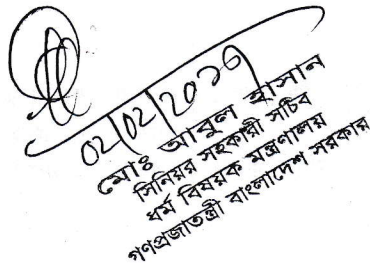 02/02/2017
মোঃ আবুল হাসান
সিনিয়র সহকারী সচিব
ধর্ম বিষয়ক মন্ত্রণালয়
গণপ্রজাতন্ত্রী বাংলাদেশ সরকার